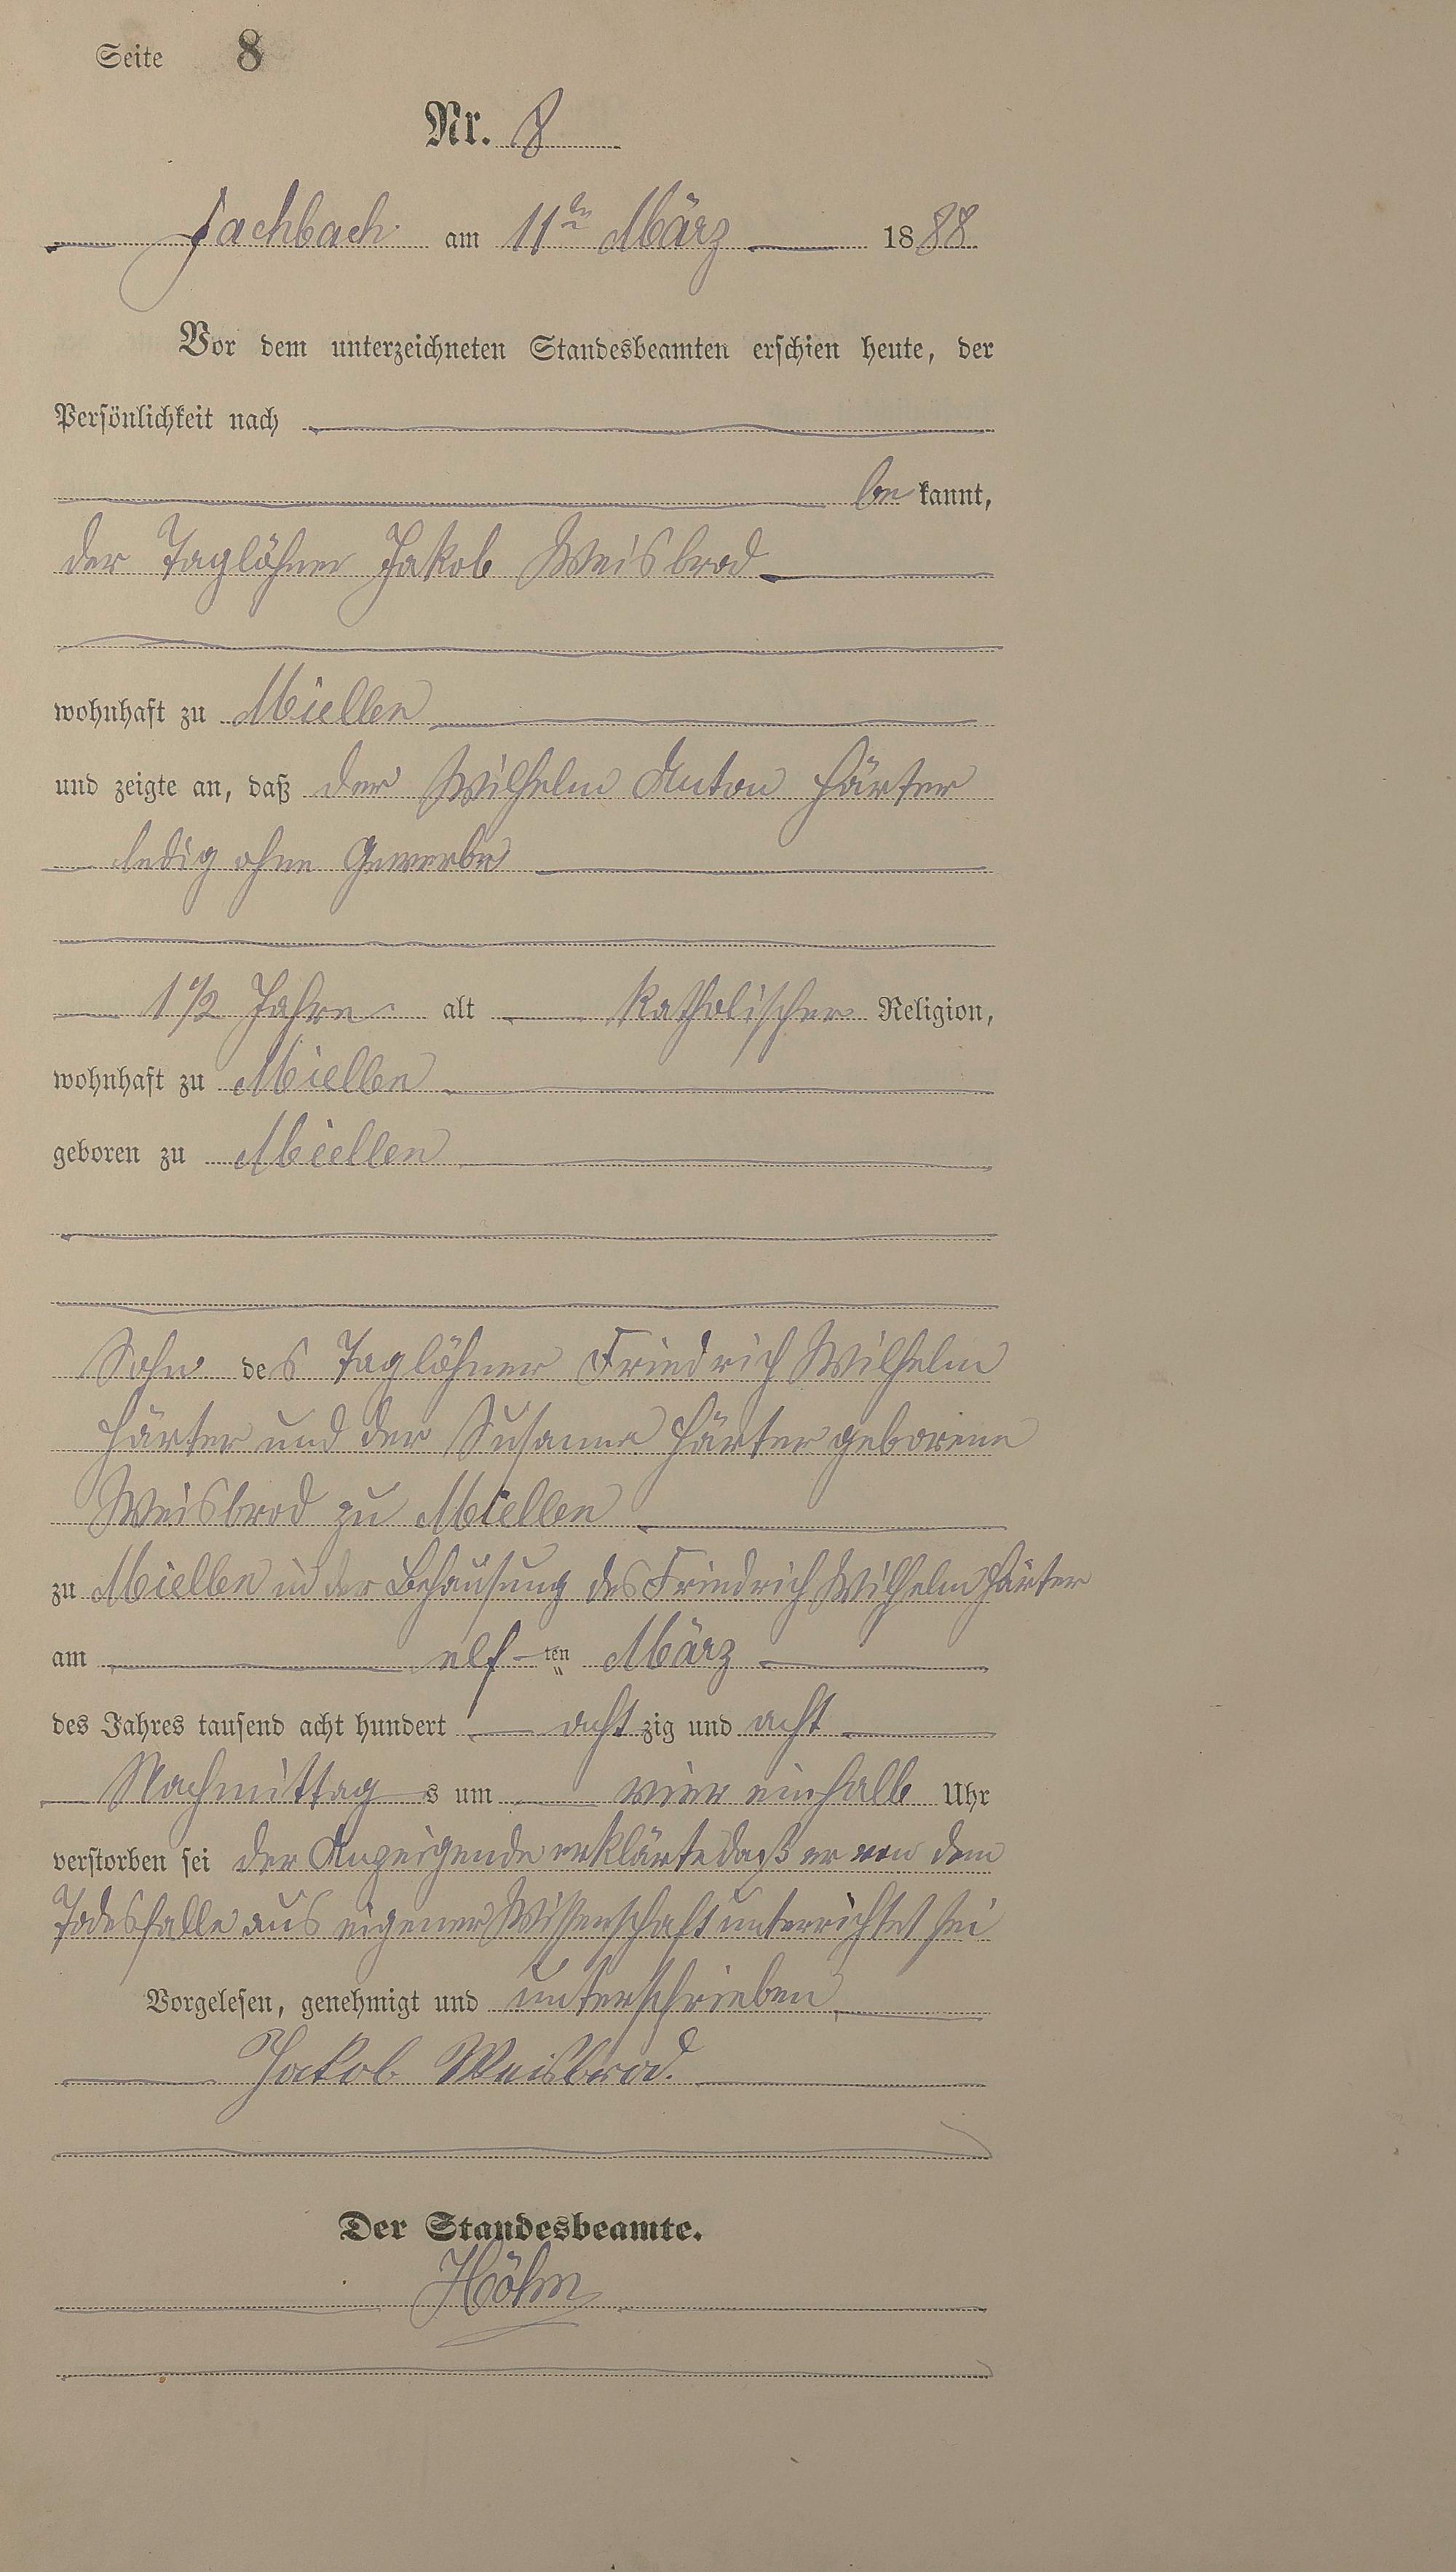 Seite 8
Nr. 8
Fachbach am 11ten März 1888
Vor dem unterzeichneten Standesbeamten erschien heute, der
Persönlichkeit nach
be kannt,
der Taglöhner Jakob Weisbrod
wohnhaft zu Miellen
und zeigte an, daß der Wilhelm Anton Härter
ledig ohne Gewerbe
1 1/2 Jahre alt katholischer Religion,
wohnhaft zu Miellen
geboren zu Miellen
Sohn des Taglöhner Friedrich Wilhelm
Härter und der Susanna Härter geborene
Weisbrod zu Miellen
zu Miellen in der Behausung des Friedrich Wilhelm Härter
am elf-ten März
des Jahres tausend acht hundert acht zig und acht
Nachmittag s um vier einhalb Uhr
verstorben sei der Anzeigende erklärte daß er von dem
Todesfalle aus eigener Wissenschaft unterrichtet sei
Vorgelesen, genehmigt und unterschrieben
Jakob Weisbrod.
Der Standesbeamte.
Höhn